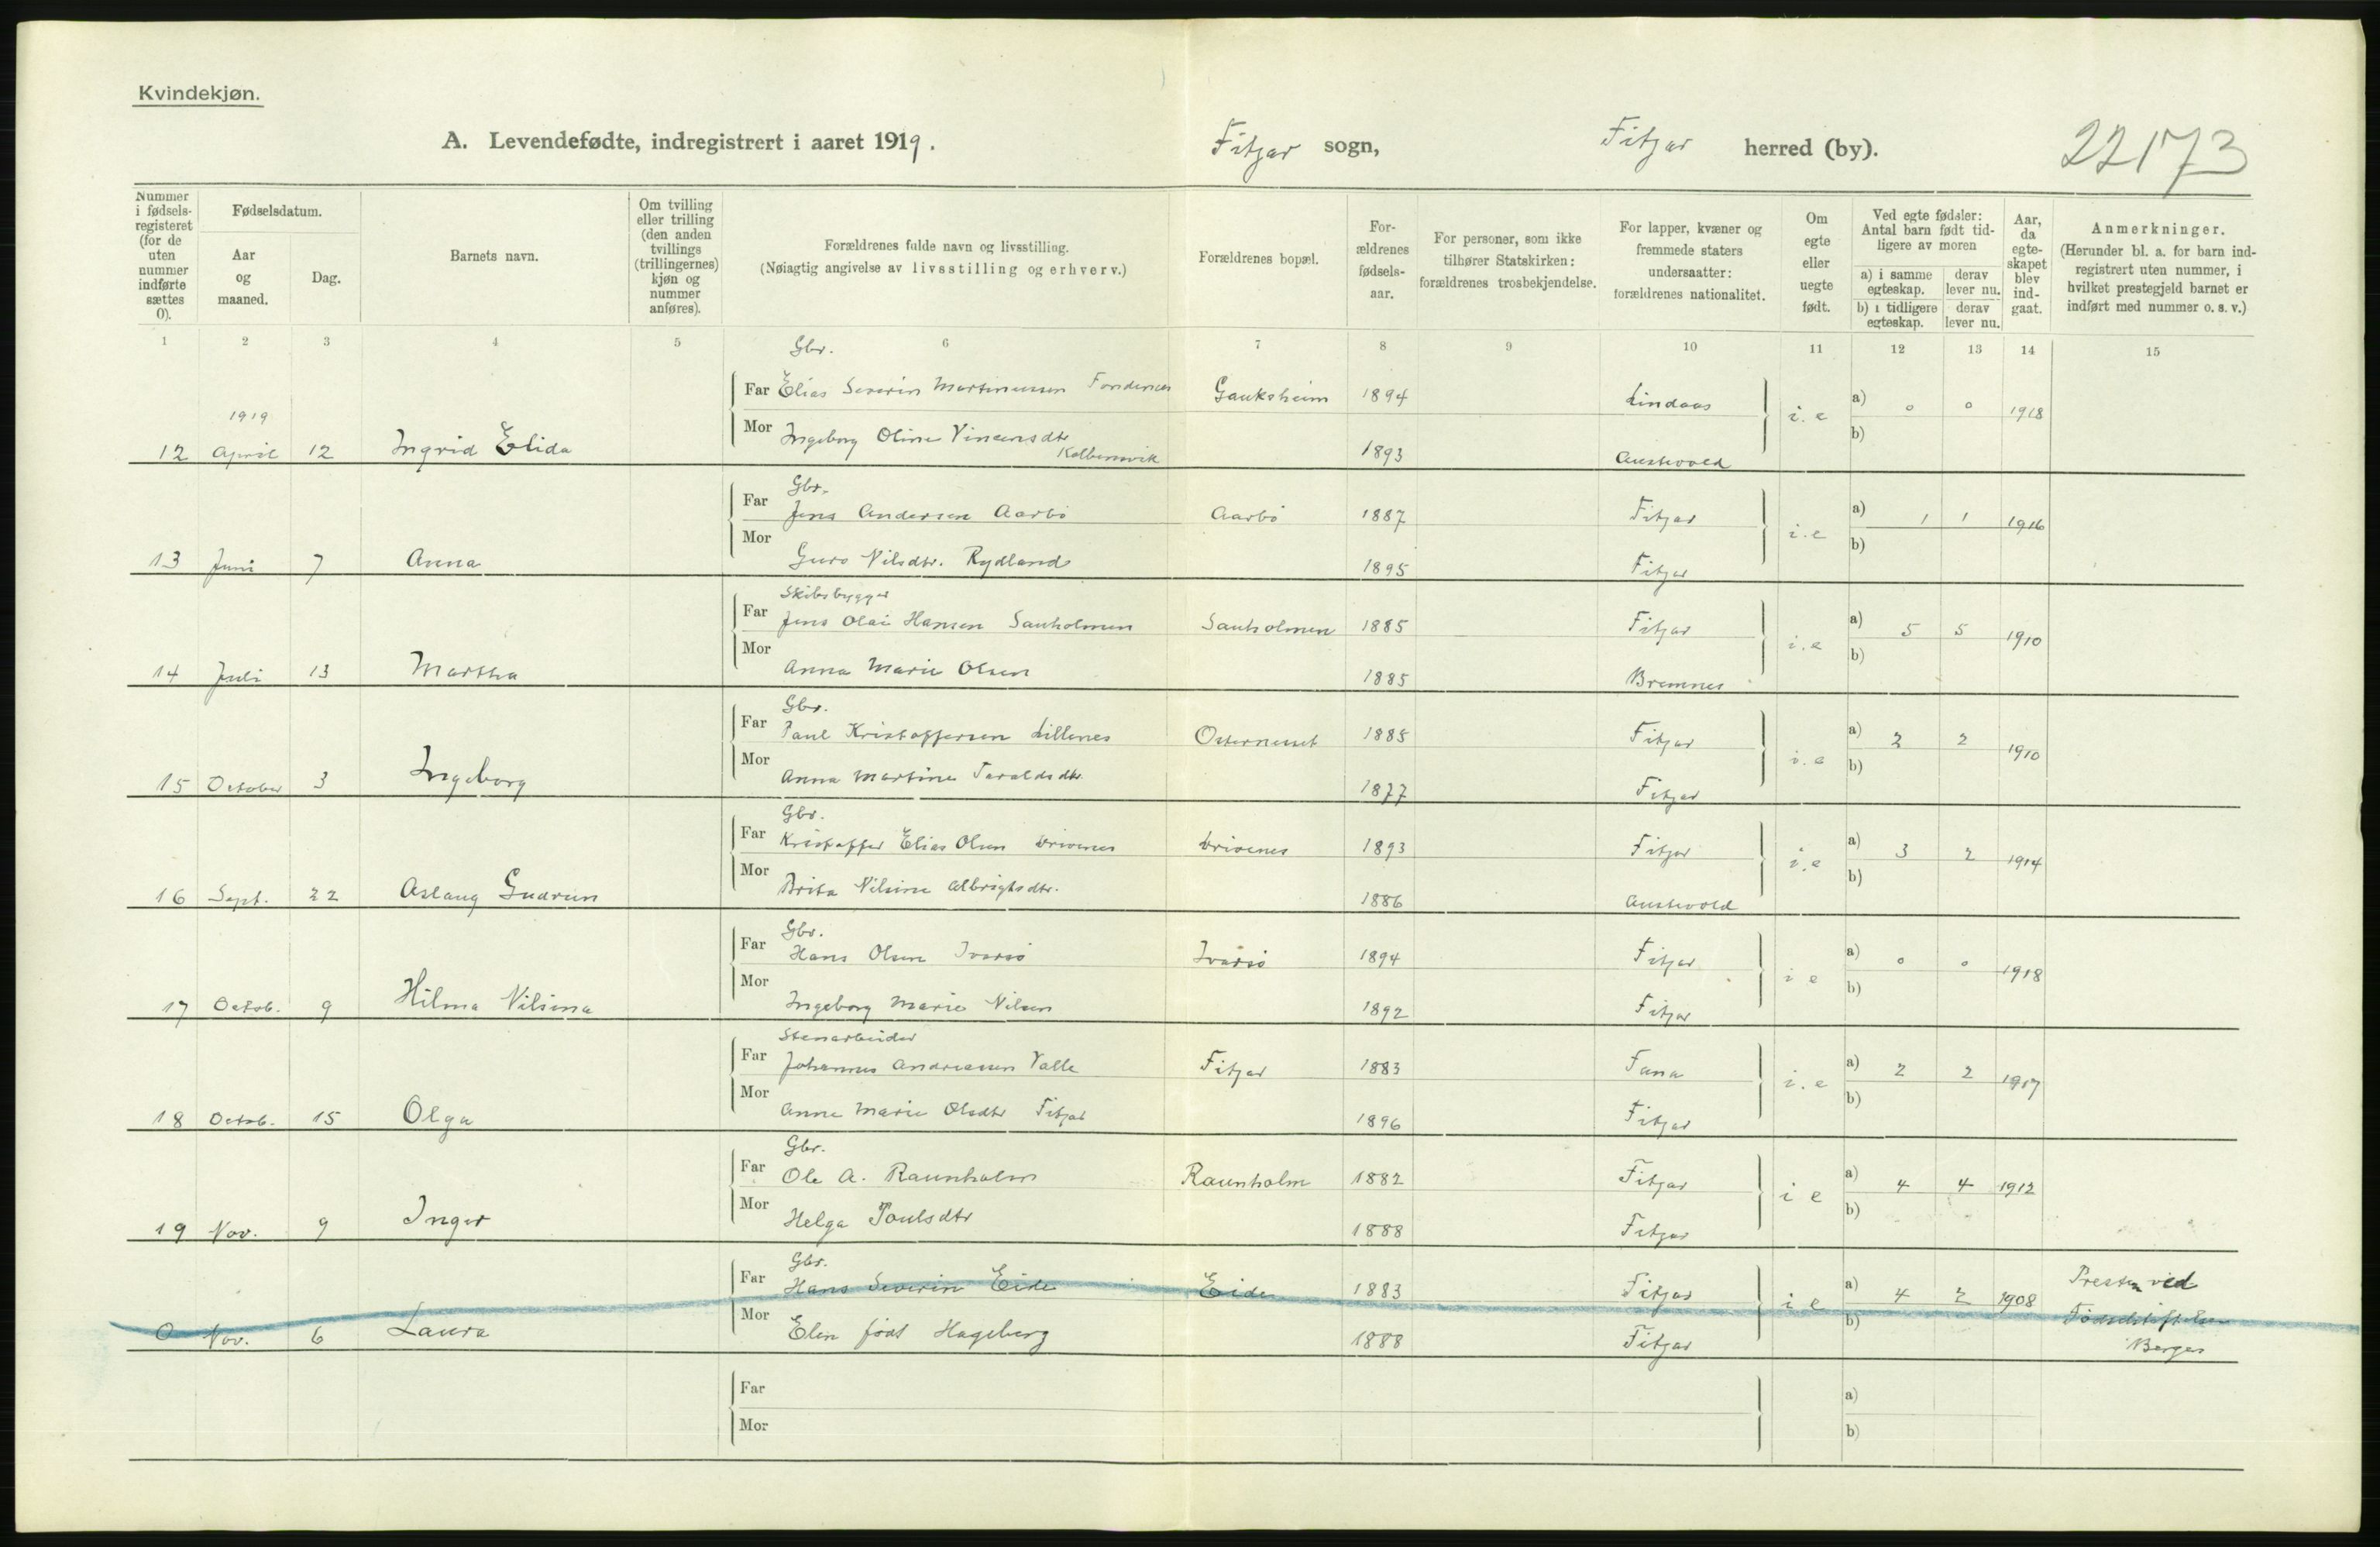 Kvindekjøn.
A. Levendefødte, indregistrert i aaret 1919.
Fitjar sogn,
Fitjar herred (by).
22173
Nummer i fødsels-registeret (for de uten nummer indførte sættes 0).
Fødselsdatum.
Aar og maaned.
Dag.
Barnets navn.
Om tvilling eller trilling (den anden tvillings (trillingernes) kjøn og nummer anføres).
Forældrenes fulde navn og livsstilling.
(Nøiagtig angivelse av livsstilling og erhverv.)
Forældrenes bopæl.
For-ældrenes fødsels-aar.
For personer, som ikke tilhører Statskirken: forældrenes trosbekjendelse.
For lapper, kvæner og fremmede staters undersaatter: forældrenes nationalitet.
Om egte eller uegte født.
Ved egte fødsler: Antal barn født tid-ligere av moren
a) i samme egteskap.
derav lever nu.
b) i tidligere egteskap.
derav lever nu.
Aar, da egte-skapet blev ind-gaat.
Anmerkninger.
(Herunder bl. a. for barn ind-registrert uten nummer, i hvilket prestegjeld barnet er indført med nummer o. s. v.)
1 2 3 4 5 6 7 8 9 10 11 12 13 14 15
Gbr.
Far Elias Severin Martinussen Fondenes Gauksheim 1894 Lindaas
1919 i.e a) 0 0 1918
Mor Ingeborg Oline Vincensdtr b)
12 April 12 Ingrid Elida Kolbeinsvik 1893 Austevold
Gbr.
Far Jens Andersen Aarbø Aarbø 1887 Fitjar i.e a) 1 1 1916
Mor b)
13 Juni 7 Anna Guro Nilsdtr. Rydland 1895 Fitjar
Skibsbygger
Far Jens Olai Hansen Sauholmen Sauholmen 1885 Fitjar i.e a) 5 5 1910
Mor b)
14 Juli 13 Martha Anna Marie Olsen 1885 Bremnes
Gbr.
Far Paul Kristoffersen Lillenes Osternesset 1885 Fitjar i.e a) 2 2 1910
Mor b)
15 October 3 Ingeborg Anna Martine Taraldsdtr. 1877 Fitjar
Gbr.
Far Kristoffer Elias Olsen Drivenes Drivenes 1893 Fitjar i.e a) 3 2 1914
Mor b)
16 Sept. 22 Aslaug Gudrun Brita Nilsine Albrigtsdtr. 1886 Austevold
Gbr.
Far Hans Olsen Ivarsø Ivarsø 1894 Fitjar i e a) 0 0 1918
Mor b)
17 Octob. 9 Hilma Nilsina Ingeborg Marie Nilsen 1892 Fitjar
Stenarbeider
Far Johannes Andreassen Valle Fitjar 1883 Fana i.e a) 2 2 1917
Mor b)
18 Octob. 15 Olga Anna Marie Olsdtr Fitjar 1896 Fitjar
Gbr.
Far Ole A. Raunholm Raunholm 1882 Fitjar i e a) 4 4 1912
Mor b)
19 Nov. 9 Inger Helga Poulsdtr 1888 Fitjar
Gbr.
Far Hans Severin Eide Eide 1883 Fitjar i e a) 4 2 1908 Presten ved
Mor b) Fødselstiftelsen
0 Nov. 6 Laura Elen født Hageberg 1888 Fitjar Bergen
Far a)
Mor b)